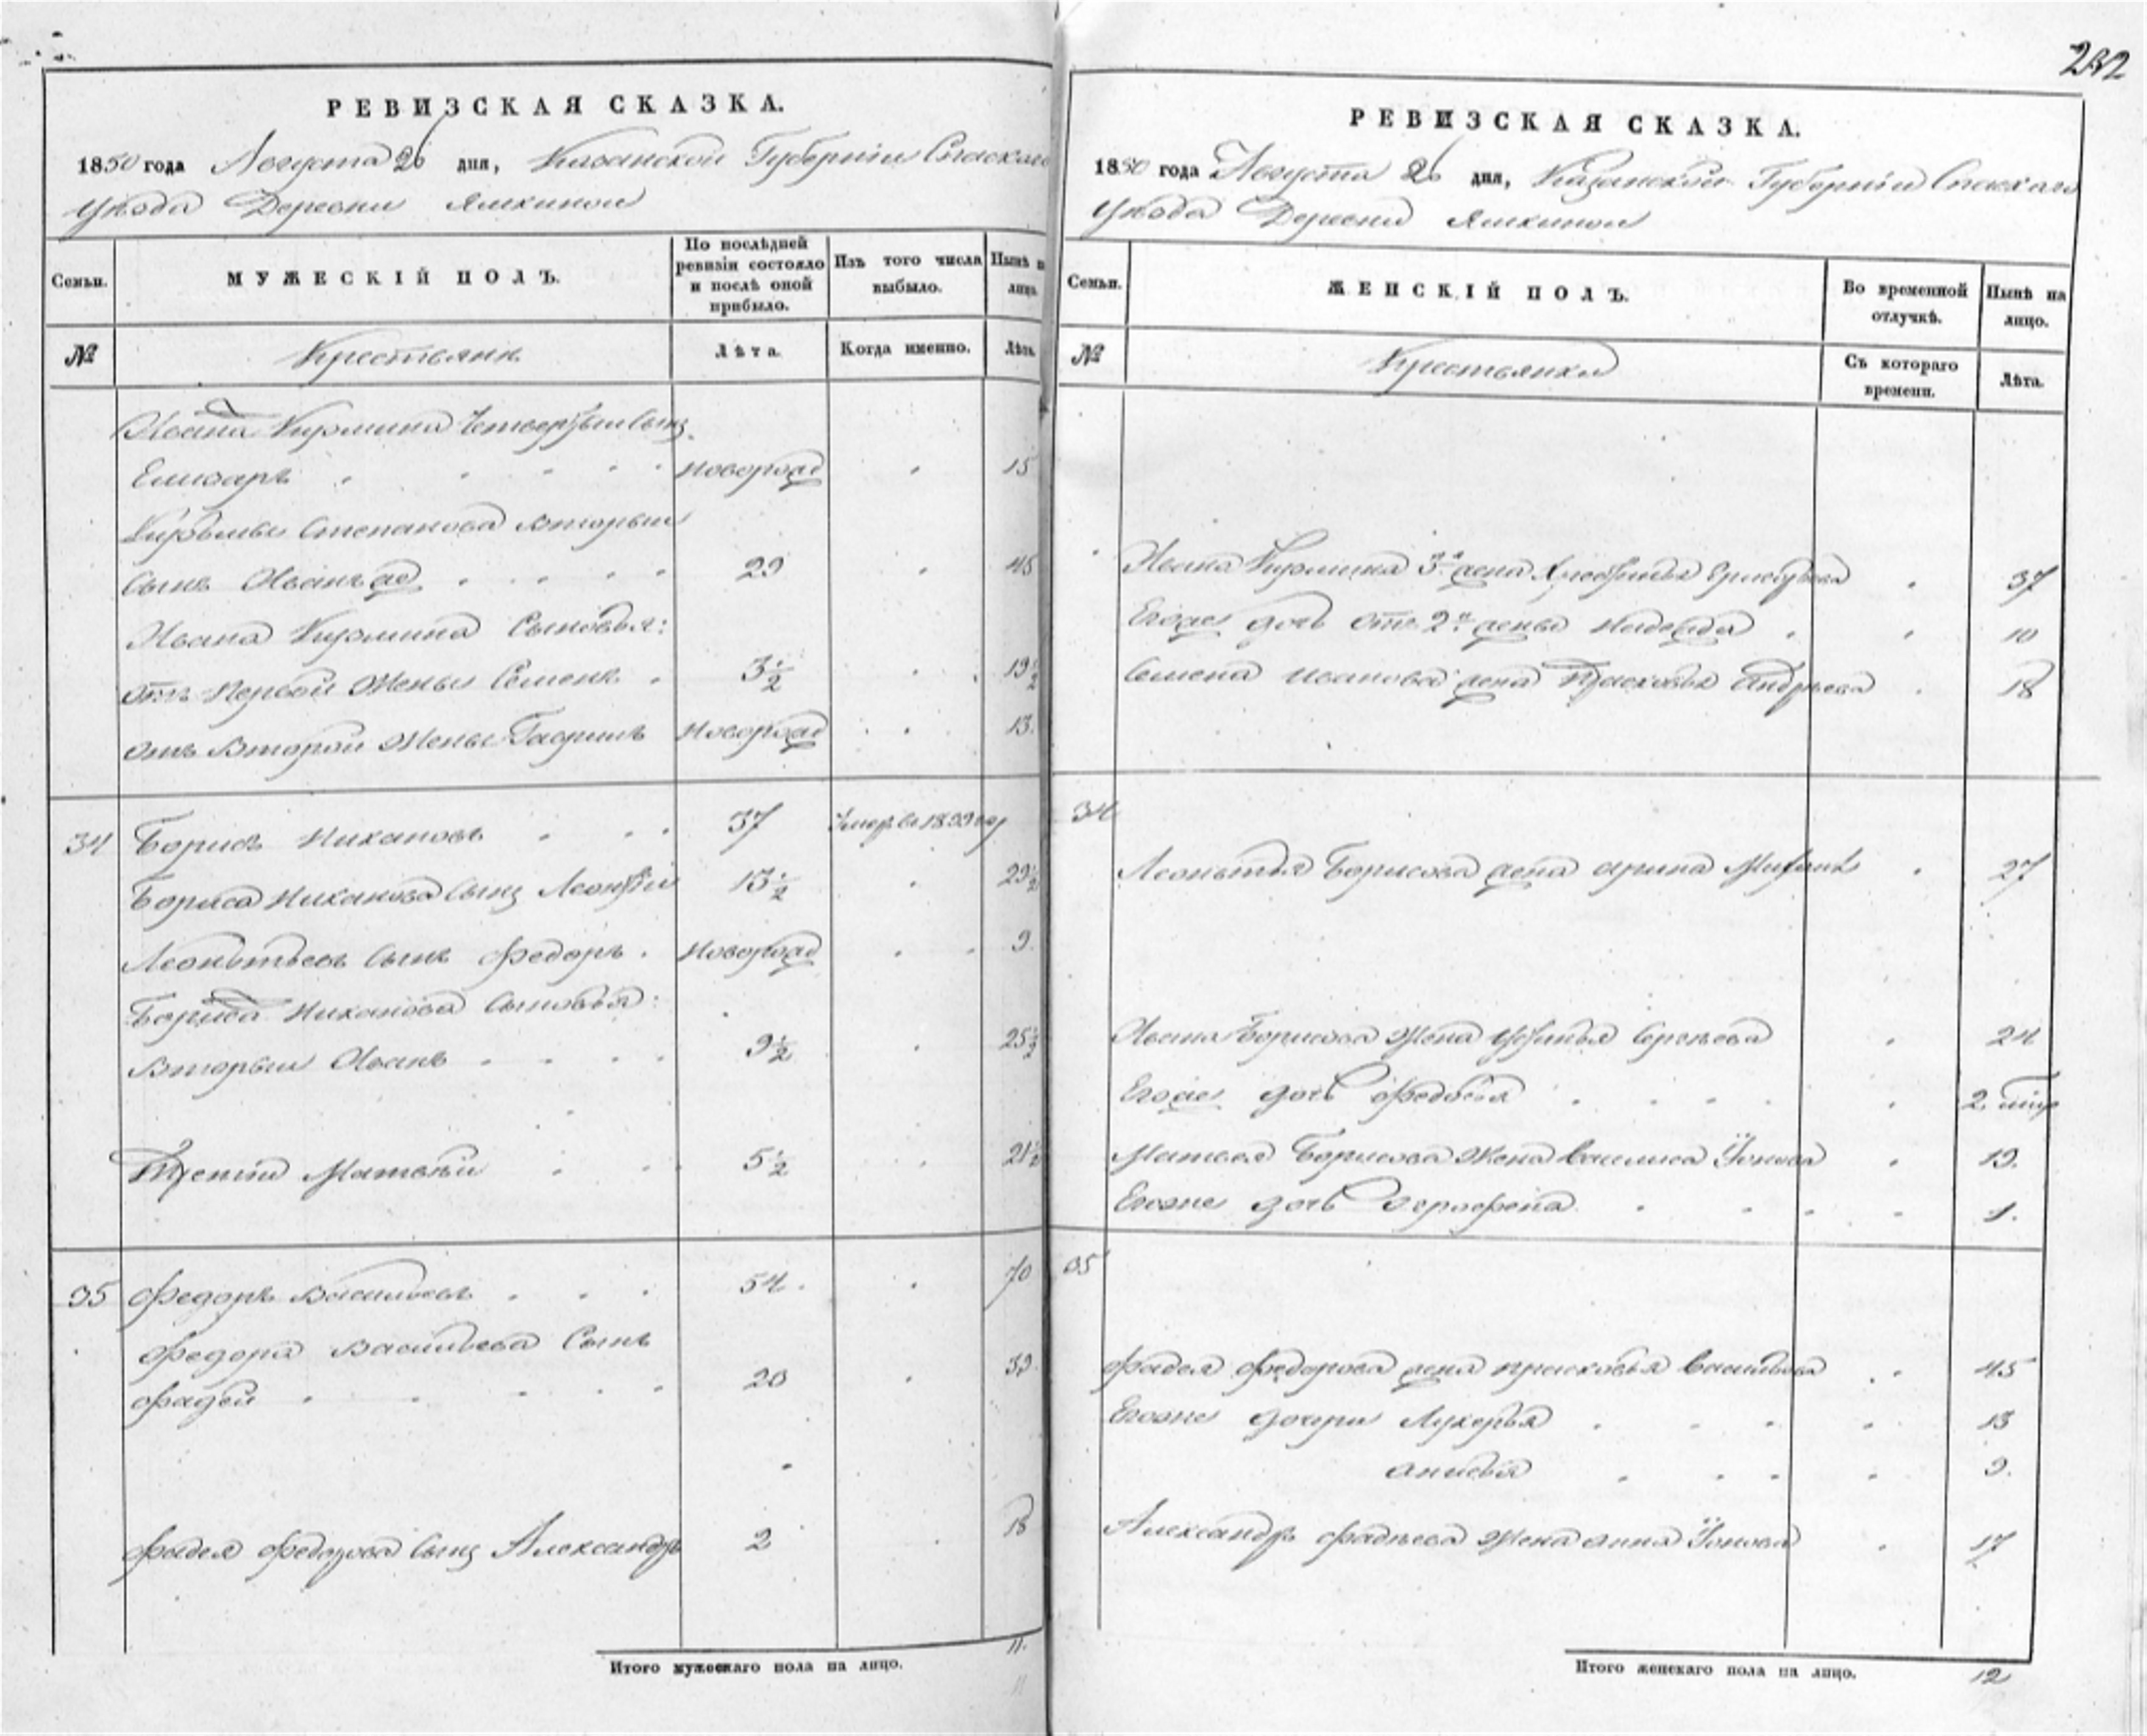 РЕВИЗСКАЯ СКАЗКА.
1850 года Августа 26 дня, Казанской Губернии Спаскаго
уѣзда Деревни Ямкиной
Семьи.
МУЖЕСКІЙ ПОЛЪ.
По послѣдней ревизіи состояло и послѣ оной прибыло.
Изъ того числа выбыло.
Нынѣ на лицо.
№
Крестьянъ
Лѣта.
Когда именно.
Лѣта.
Ивана Кузмина четвертый сынъ
Елизаръ новорожд 15
Кузьмы Степанова вторый
сынъ Иванъ 29 45
Ивана Кузмина сыновья:
отъ первой жены Семенъ 3½ 19½
отъ второй жены Гаврилъ новорожд 13.
34 Борисъ Никановъ 37 умер въ 1839
Бориса Никанова сынъ Леонтій 13½ 29½
Леонтьевъ сынъ Федоръ новорожд 9.
Бориса Никанова сыновья:
вторый Иванъ 9½ 25½
Третій Матвѣй 5½ 21½
35 Федоръ Васильевъ 54 70
Федора Васильева сынъ
Фадей 23 39
Фадея Федорова сынъ Александръ 2 18
Итого мужескаго пола на лицо. 11.
11
282
РЕВИЗСКАЯ СКАЗКА.
1850 года Августа 26 дня, Казанской Губерніи Спаскаго
уѣзда Деревни Ямкиной
Семьи.
ЖЕНСКІЙ ПОЛЪ.
Во временной отлучкѣ.
Нынѣ на лицо.
№
Крестьянки
Съ котораго времени.
Лѣта.
Ивана Кузмина 3я жена 37
Егоже дочь отъ 2й жены Надежда 10
Семена Иванова жена Прасковья Андреева 18
34
Леонтья Борисова жена Арина 27
Ивана Борисова жена Сергѣева 24
Егоже дочь Федосья 2
Матвея Борисова жена Василиса 19.
Егоже дочь 1.
35
Фадея Федорова жена Прасковья Васильева 45
Егоже дочери Лукерья 13
Анисья 9.
Александръ Фадѣева жена Анна 17
Итого женскаго пола на лицо. 12